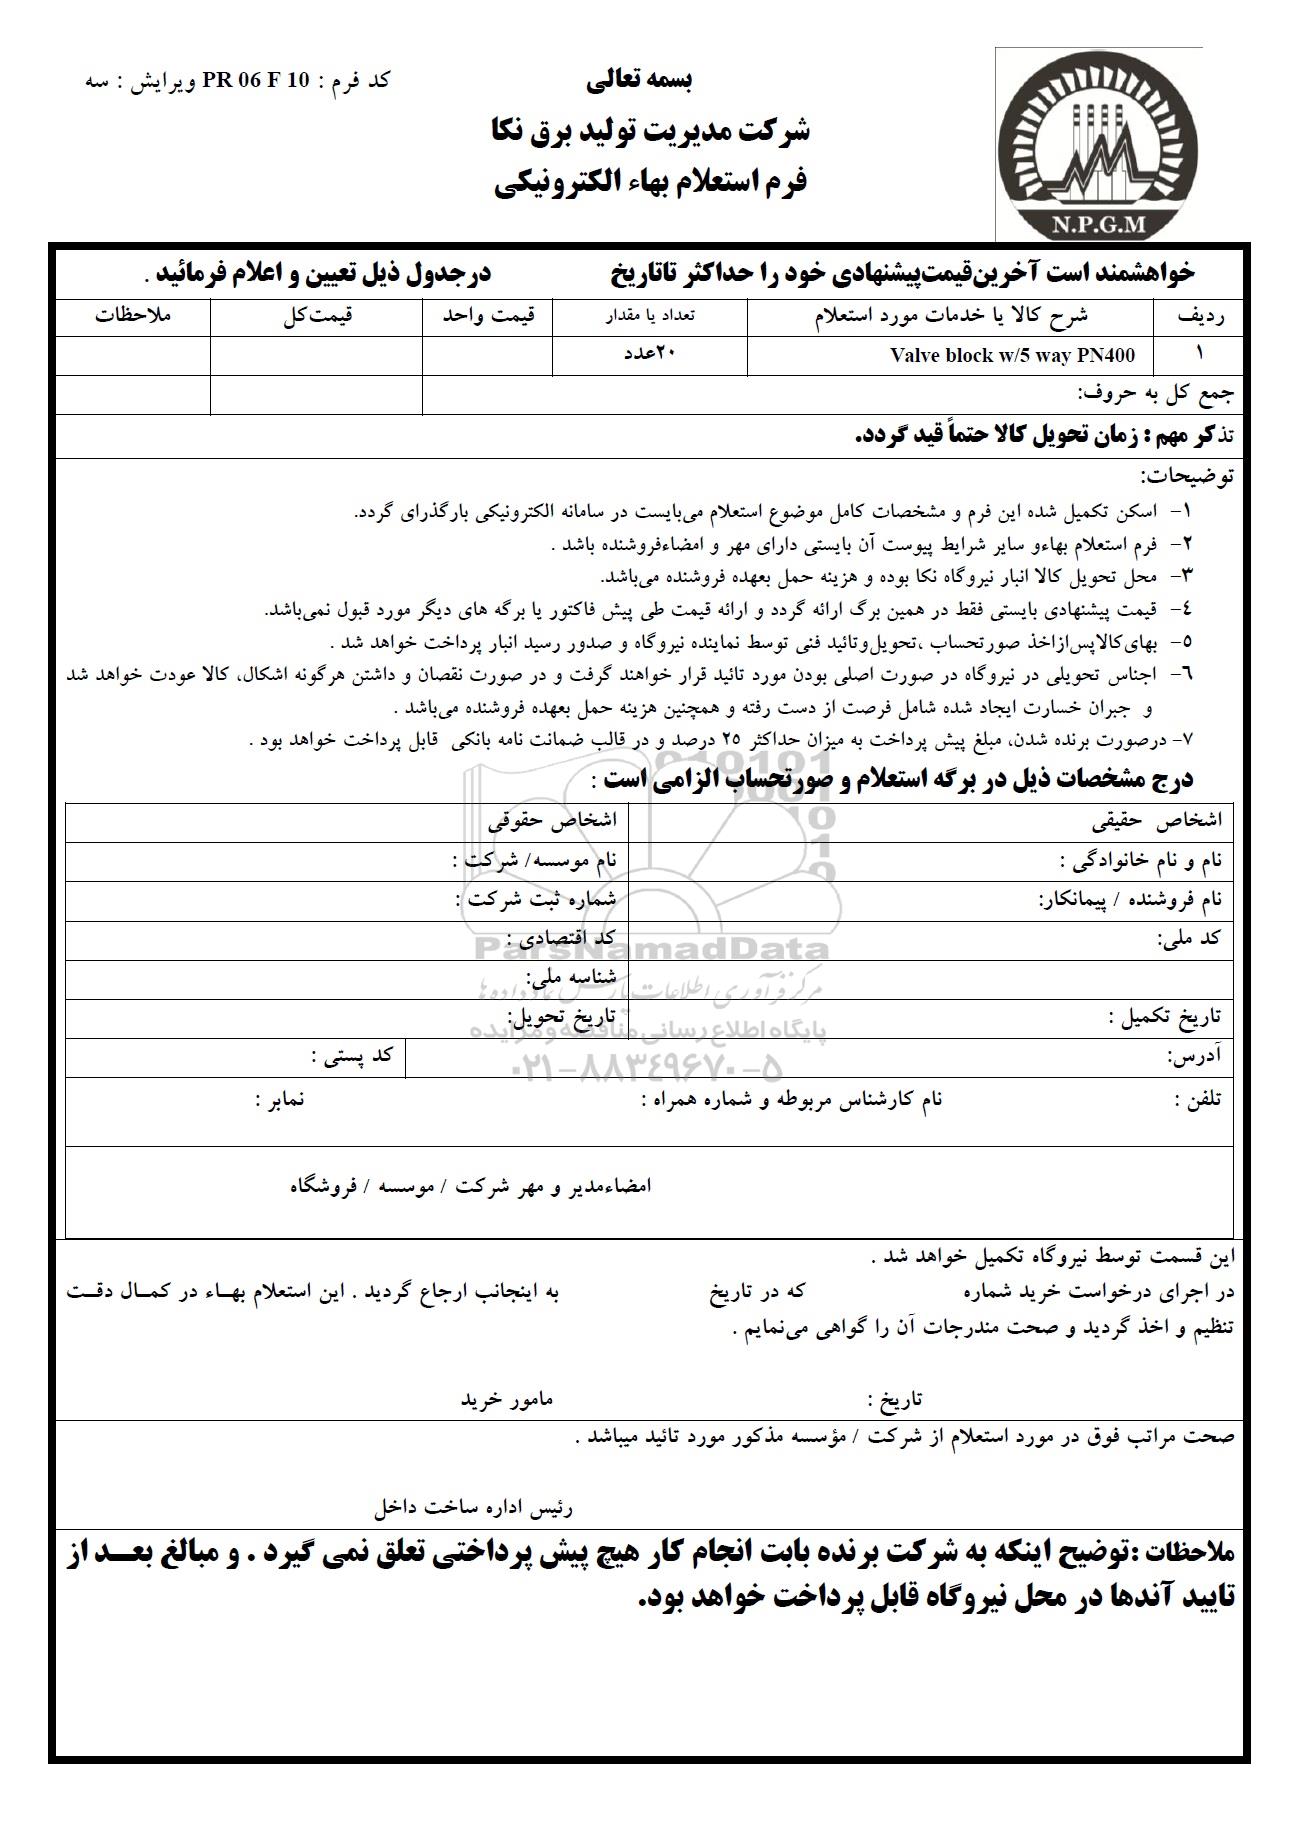 بسمه تعالی
کد فرم : PR 06 F 10 ویرایش : سه
شرکت مدیریت تولید برق نکا
فرم استعلام بهاء الکترونیکی
N.P.G.M
خواهشمند است آخرین‌قیمت‌پیشنهادی خود را حداکثر تاتاریخ درجدول ذیل تعیین و اعلام فرمائید .
ردیف شرح کالا یا خدمات مورد استعلام تعداد یا مقدار قیمت واحد قیمت‌کل ملاحظات
۱ Valve block w/5 way PN400 ۲۰عدد
جمع کل به حروف:
تذکر مهم : زمان تحویل کالا حتماً قید گردد.
توضیحات:
۱- اسکن تکمیل شده این فرم و مشخصات کامل موضوع استعلام می‌بایست در سامانه الکترونیکی بارگذرای گردد.
۲- فرم استعلام بهاءو سایر شرایط پیوست آن بایستی دارای مهر و امضاءفروشنده باشد .
۳- محل تحویل کالا انبار نیروگاه نکا بوده و هزینه حمل بعهده فروشنده می‌باشد.
٤- قیمت پیشنهادی بایستی فقط در همین برگ ارائه گردد و ارائه قیمت طی پیش فاکتور یا برگه های دیگر مورد قبول نمی‌باشد.
٥- بهای‌کالاپس‌ازاخذ صورتحساب ،تحویل‌وتائید فنی توسط نماینده نیروگاه و صدور رسید انبار پرداخت خواهد شد .
٦- اجناس تحویلی در نیروگاه در صورت اصلی بودن مورد تائید قرار خواهند گرفت و در صورت نقصان و داشتن هرگونه اشکال، کالا عودت خواهد شد
و جبران خسارت ایجاد شده شامل فرصت از دست رفته و همچنین هزینه حمل بعهده فروشنده می‌باشد .
۷- درصورت برنده شدن، مبلغ پیش پرداخت به میزان حداکثر ۲٥ درصد و در قالب ضمانت نامه بانکی قابل پرداخت خواهد بود .
درج مشخصات ذیل در برگه استعلام و صورتحساب الزامی است :
اشخاص حقیقی اشخاص حقوقی
نام و نام خانوادگی : نام موسسه/ شرکت :
نام فروشنده / پیمانکار: شماره ثبت شرکت :
کد ملی: کد اقتصادی :
ParsNamadData
شناسه ملی:
مرکز فرآوری اطلاعات پارس نماد داده‌ها
تاریخ تکمیل : تاریخ تحویل:
پایگاه اطلاع رسانی مناقصه و مزایده
آدرس: کد پستی :
۰۲۱-۸۸۳۴۹۶۷۰-۵
تلفن : نام کارشناس مربوطه و شماره همراه : نمابر :
امضاءمدیر و مهر شرکت / موسسه / فروشگاه
این قسمت توسط نیروگاه تکمیل خواهد شد .
در اجرای درخواست خرید شماره که در تاریخ به اینجانب ارجاع گردید . این استعلام بهـاء در کمـال دقـت
تنظیم و اخذ گردید و صحت مندرجات آن را گواهی می‌نمایم .
تاریخ : مامور خرید
صحت مراتب فوق در مورد استعلام از شرکت / مؤسسه مذکور مورد تائید میباشد .
رئیس اداره ساخت داخل
ملاحظات :توضیح اینکه به شرکت برنده بابت انجام کار هیچ پیش پرداختی تعلق نمی گیرد . و مبالغ بعـد از
تایید آندها در محل نیروگاه قابل پرداخت خواهد بود.